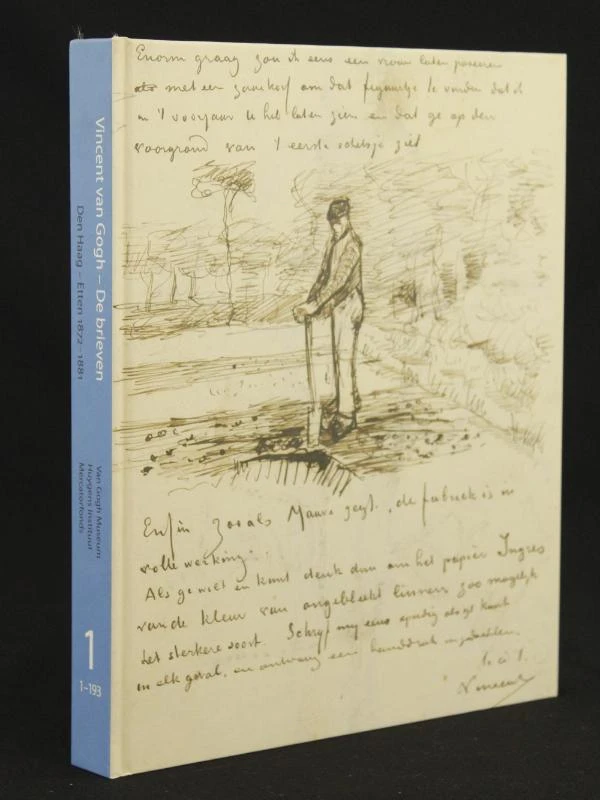 Vincent van Gogh – De brieven
Den Haag – Etten 1872–1881
Van Gogh Museum
Huygens Instituut
Mercatorfonds
1
1–193
Enorm graag zou ik eens een vrouw laten poseeren
met een zaaikorf om dat figuurtje te vinden dat ik
in 't voorjaar U heb laten zien en dat ge op den
voorgrond van 't eerste schetsje ziet
Enfin zooals Mauve zegt, de fabriek is in
volle werking.
Als ge wilt en kunt denk dan om het papier Ingres
van de kleur van ongebleekt linnen zoo mogelijk
het sterkere soort. Schryf my eens spoedig als ge kunt
in elk geval, en ontvang een handdruk in gedachten.
t. à t.
Vincent